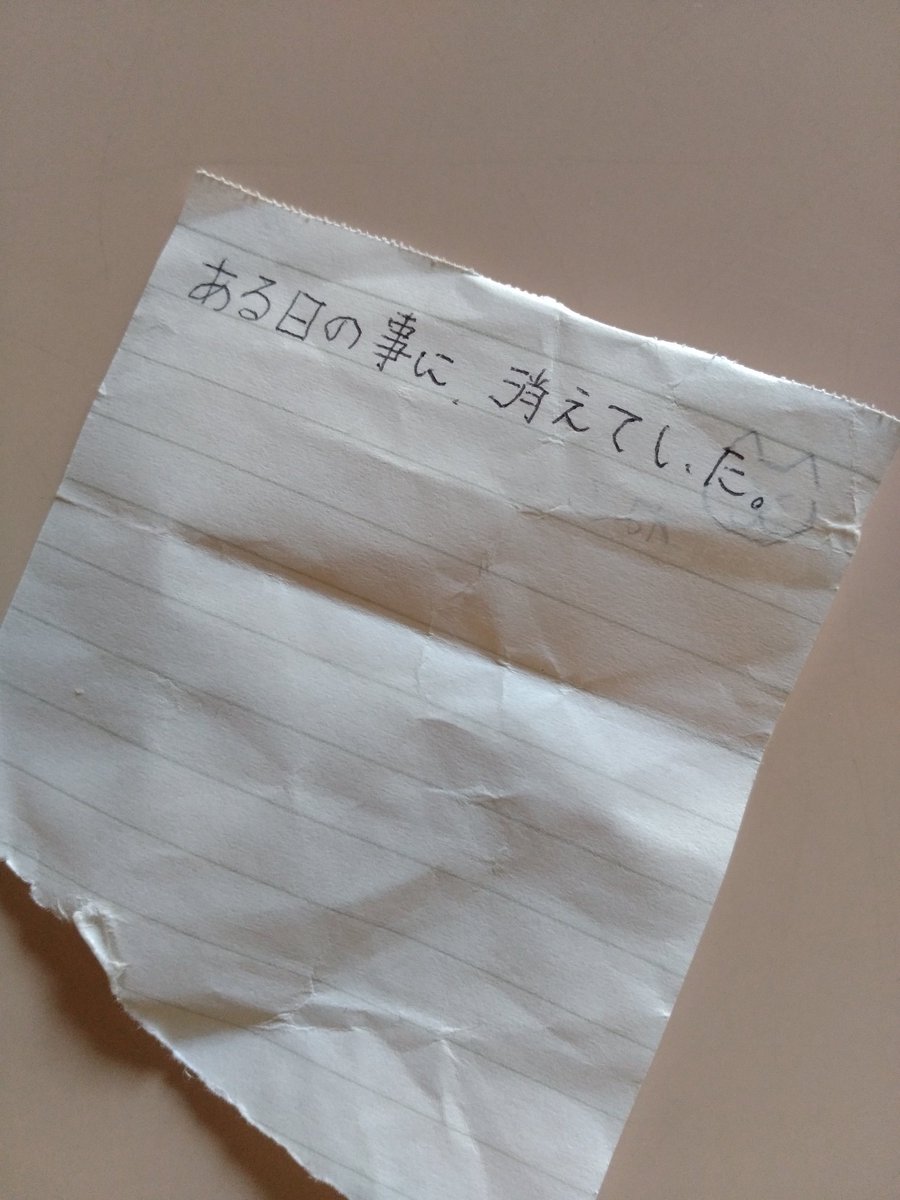 ある日の事に、消えてしいた。